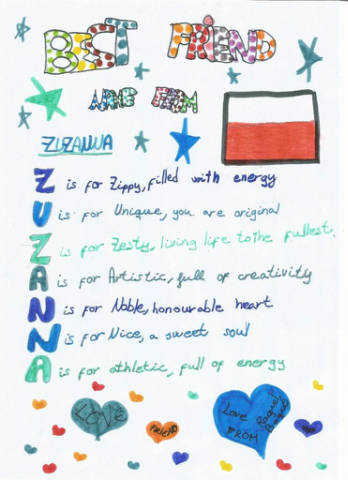 BEST FRIEND
ZUZANNA
Z is for Zippy, filled with energy
U is for Unique, you are original
Z is for Zesty, living life to the fullest.
A is for Artistic, full of creativity
N is for Noble, honourable heart
N is for Nice, a sweet soul
A is for athletic, full of energy
LOVE
FRIEND
Love
FROM